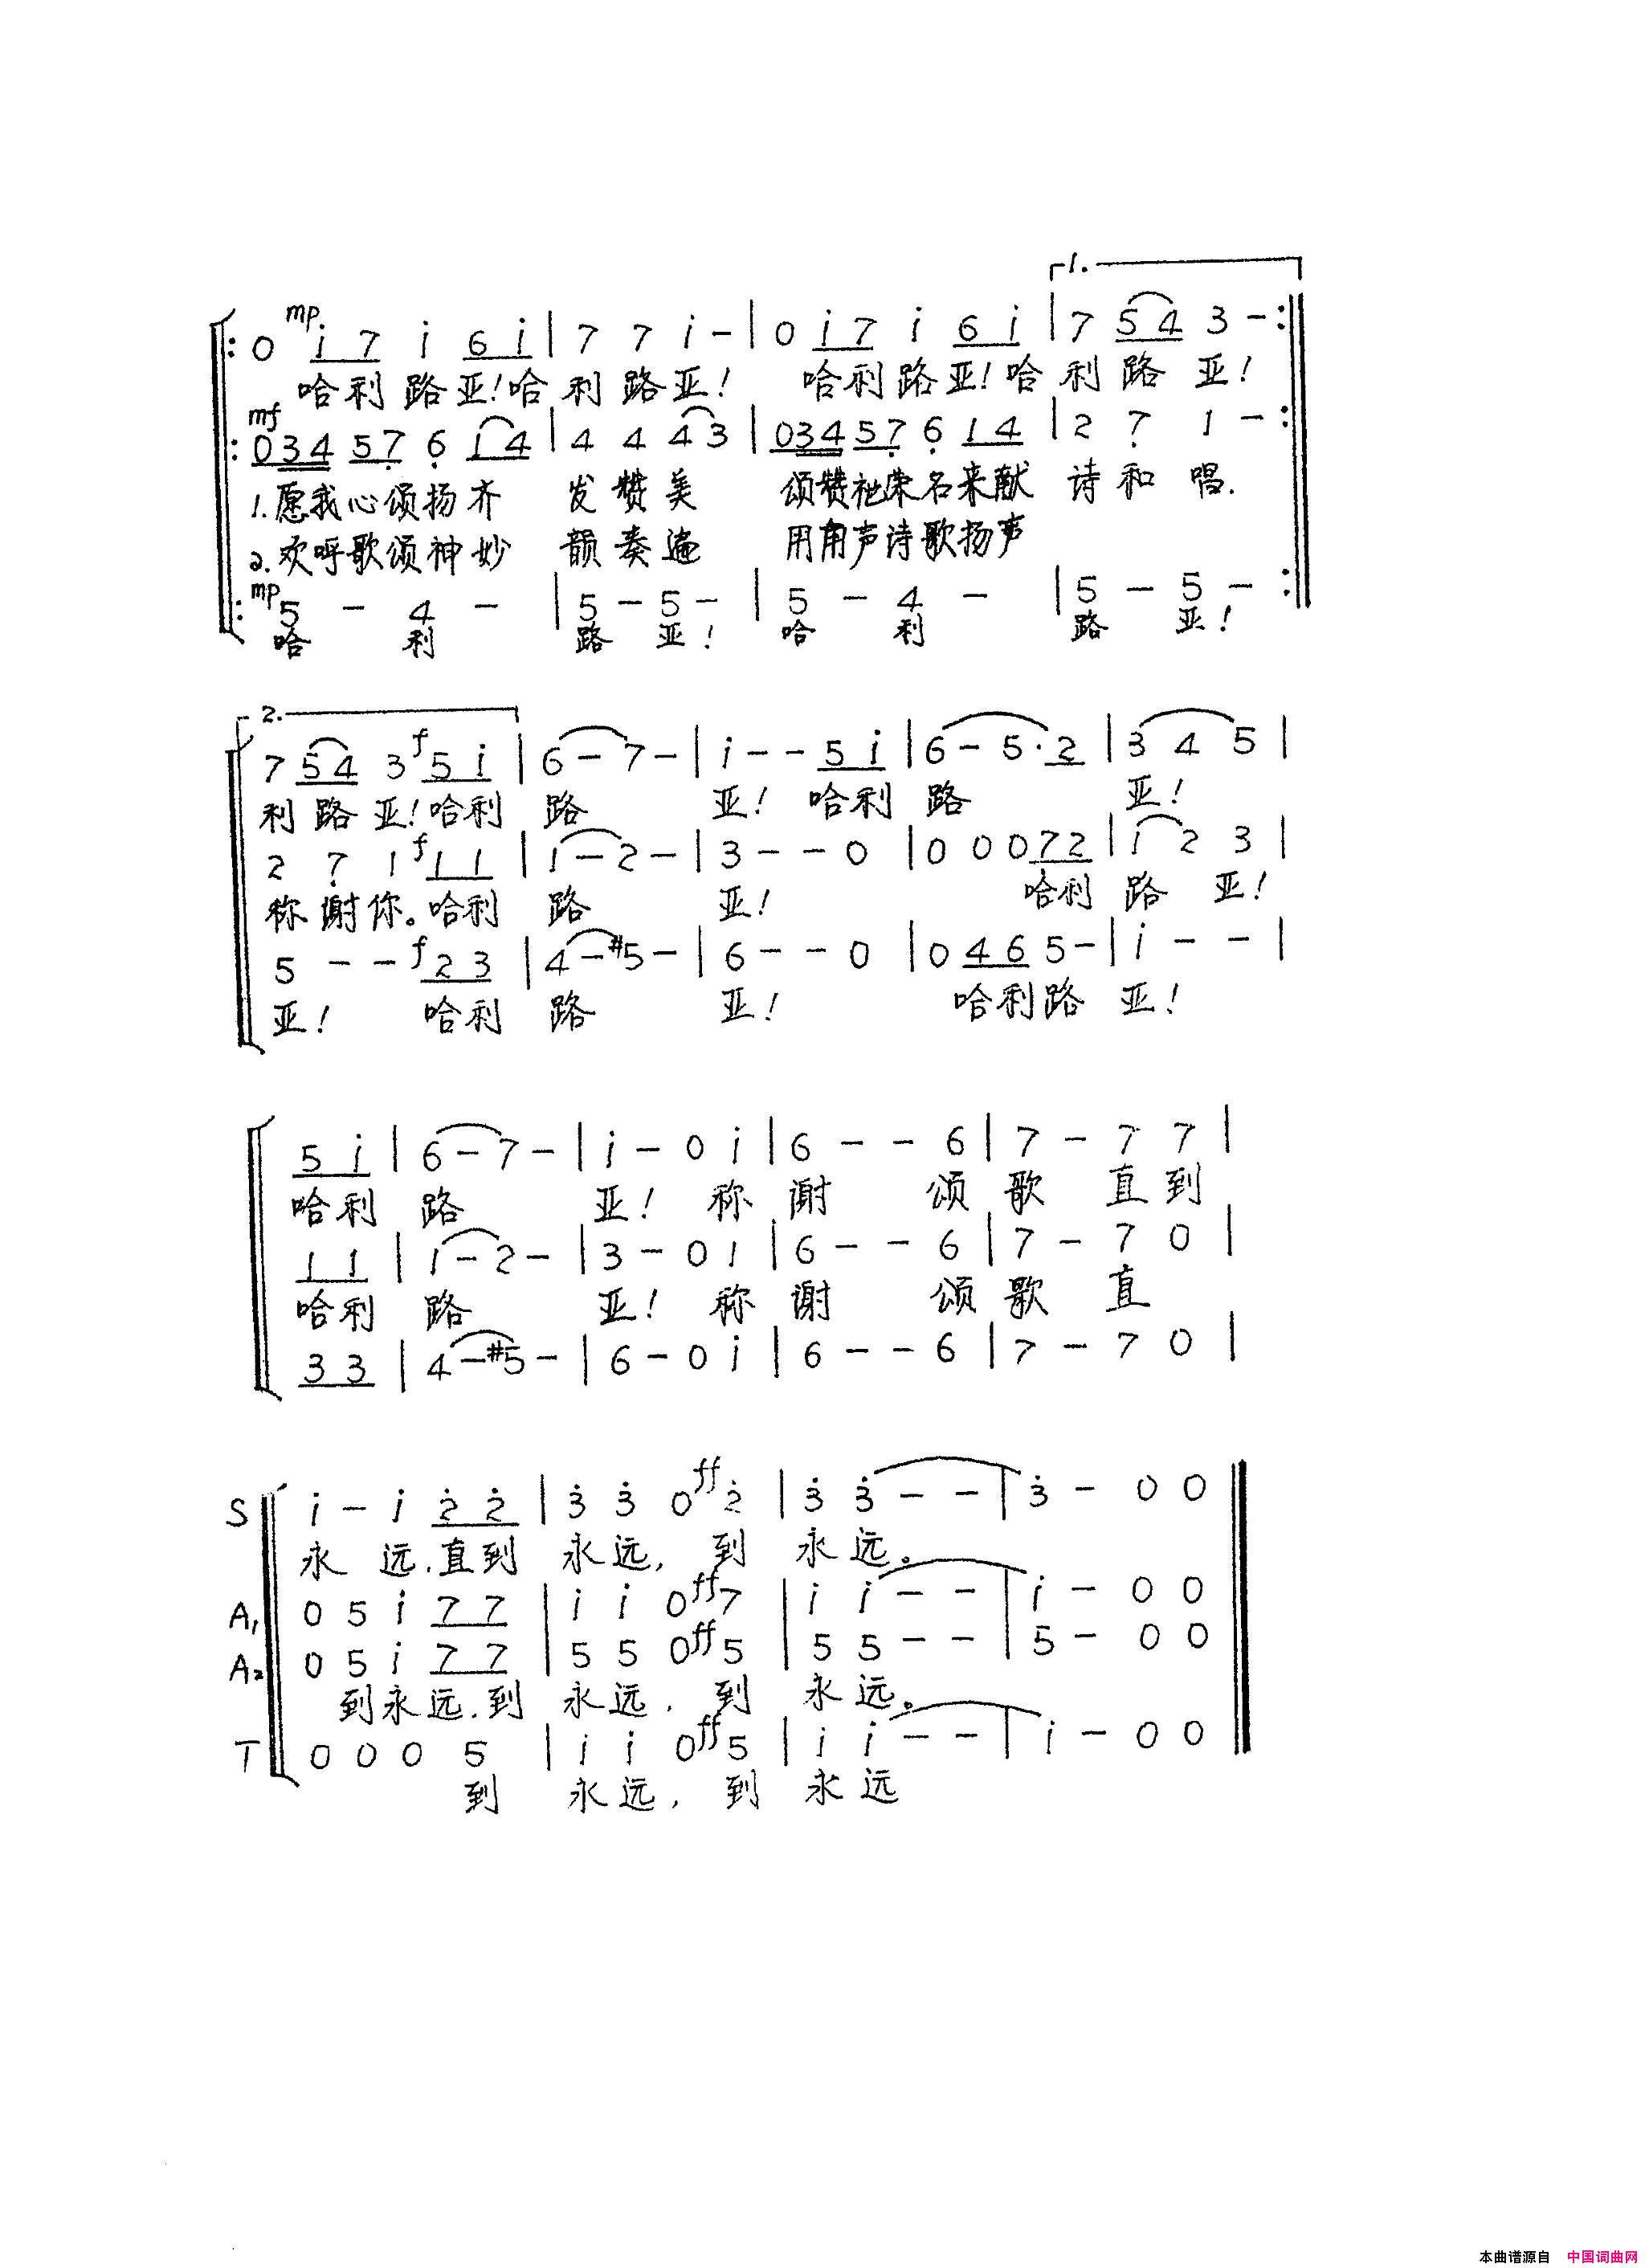 1.
mp
0 i 7 i 6 i | 7 7 i - | 0 i 7 i 6 i | 7 5 4 3 - :
哈利路亚!哈利路亚! 哈利路亚!哈利路亚!
mf
: 0 3 4 5 7 6 1 4 | 4 4 4 3 | 0 3 4 5 7 6 1 4 | 2 7 1 - :
1.愿我心颂扬齐 发赞美 颂赞祂荣名来献 诗和唱.
2.欢呼歌颂神妙 韻奏遍 用角声诗歌扬声
mp
: 5 - 4 - | 5 - 5 - | 5 - 4 - | 5 - 5 - :
哈 利 路 亚! 哈 利 路 亚!
2.
7 5 4 3 f 5 i | 6 - 7 - | i - - 5 i | 6 - 5 · 2 | 3 4 5 |
利路亚!哈利 路 亚! 哈利 路 亚!
2 7 1 f 1 1 | 1 - 2 - | 3 - - 0 | 0 0 0 7 2 | 1 2 3 |
称谢你。哈利 路 亚! 哈利 路 亚!
5 - - f 2 3 | 4 - #5 - | 6 - - 0 | 0 4 6 5 - | i - - |
亚! 哈利 路 亚! 哈利路 亚!
5 i | 6 - 7 - | i - 0 i | 6 - - 6 | 7 - 7 7 |
哈利 路 亚! 称 谢 颂 歌 直到
1 1 | 1 - 2 - | 3 - 0 1 | 6 - - 6 | 7 - 7 0 |
哈利 路 亚! 称 谢 颂 歌 直
3 3 | 4 - #5 - | 6 - 0 i | 6 - - 6 | 7 - 7 0 |
S i - i 2 2 | 3 3 0 ff 2 | 3 3 - - | 3 - 0 0
永 远.直到 永远, 到 永远。
A1 0 5 i 7 7 | i i 0 ff 7 | i i - - | i - 0 0
A2 0 5 i 7 7 | 5 5 0 ff 5 | 5 5 - - | 5 - 0 0
到永远.到 永远. 到 永远。
T 0 0 0 5 | i i 0 ff 5 | i i - - | i - 0 0
到 永远, 到 永远
本曲谱源自 中国词曲网